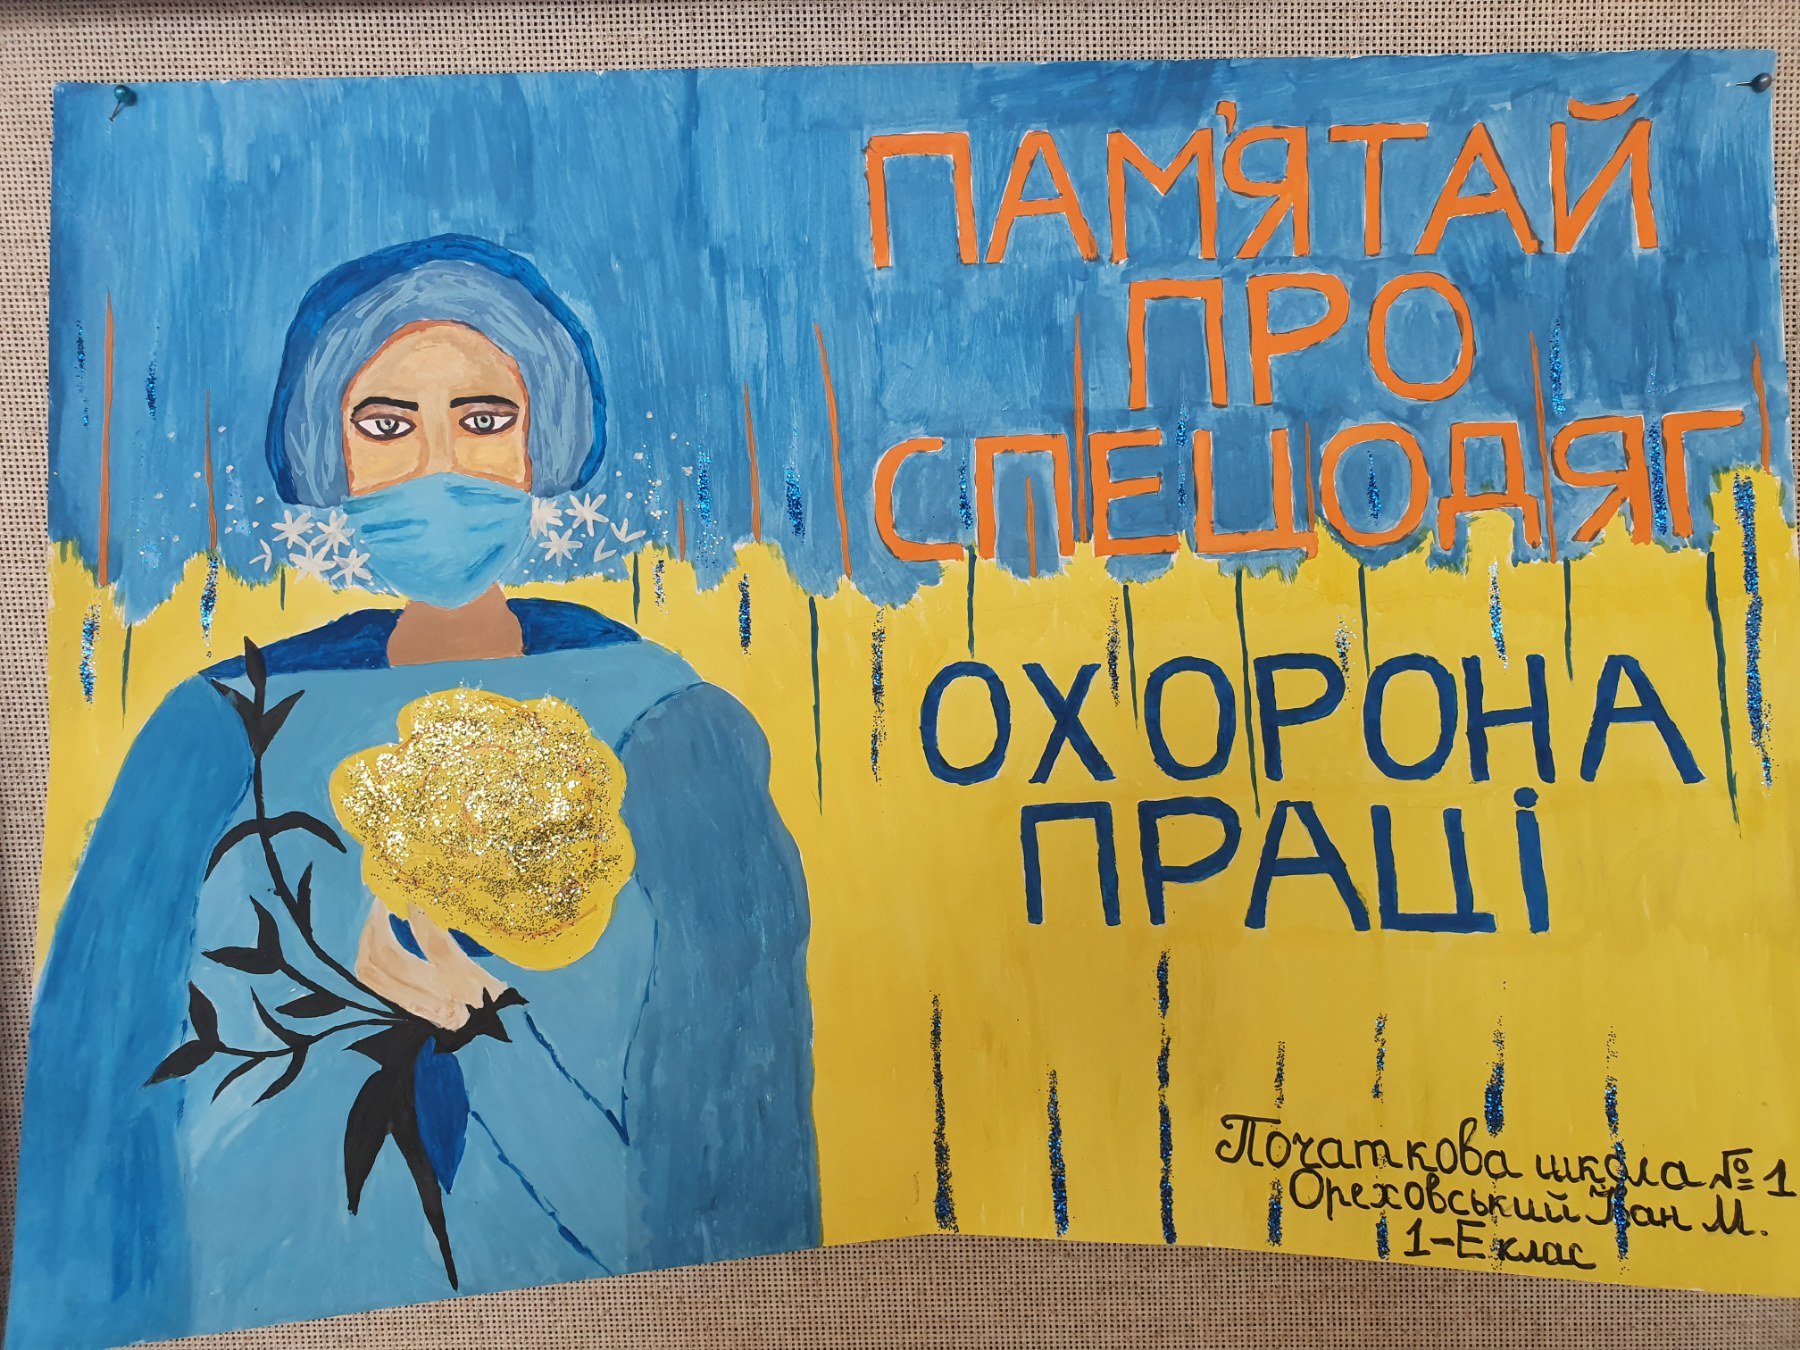 ПАМ'ЯТАЙ
ПРО
СПЕЦОДЯГ
ОХОРОНА
ПРАЦІ
Початкова школа №1
Ореховський Іван М.
1-Е клас